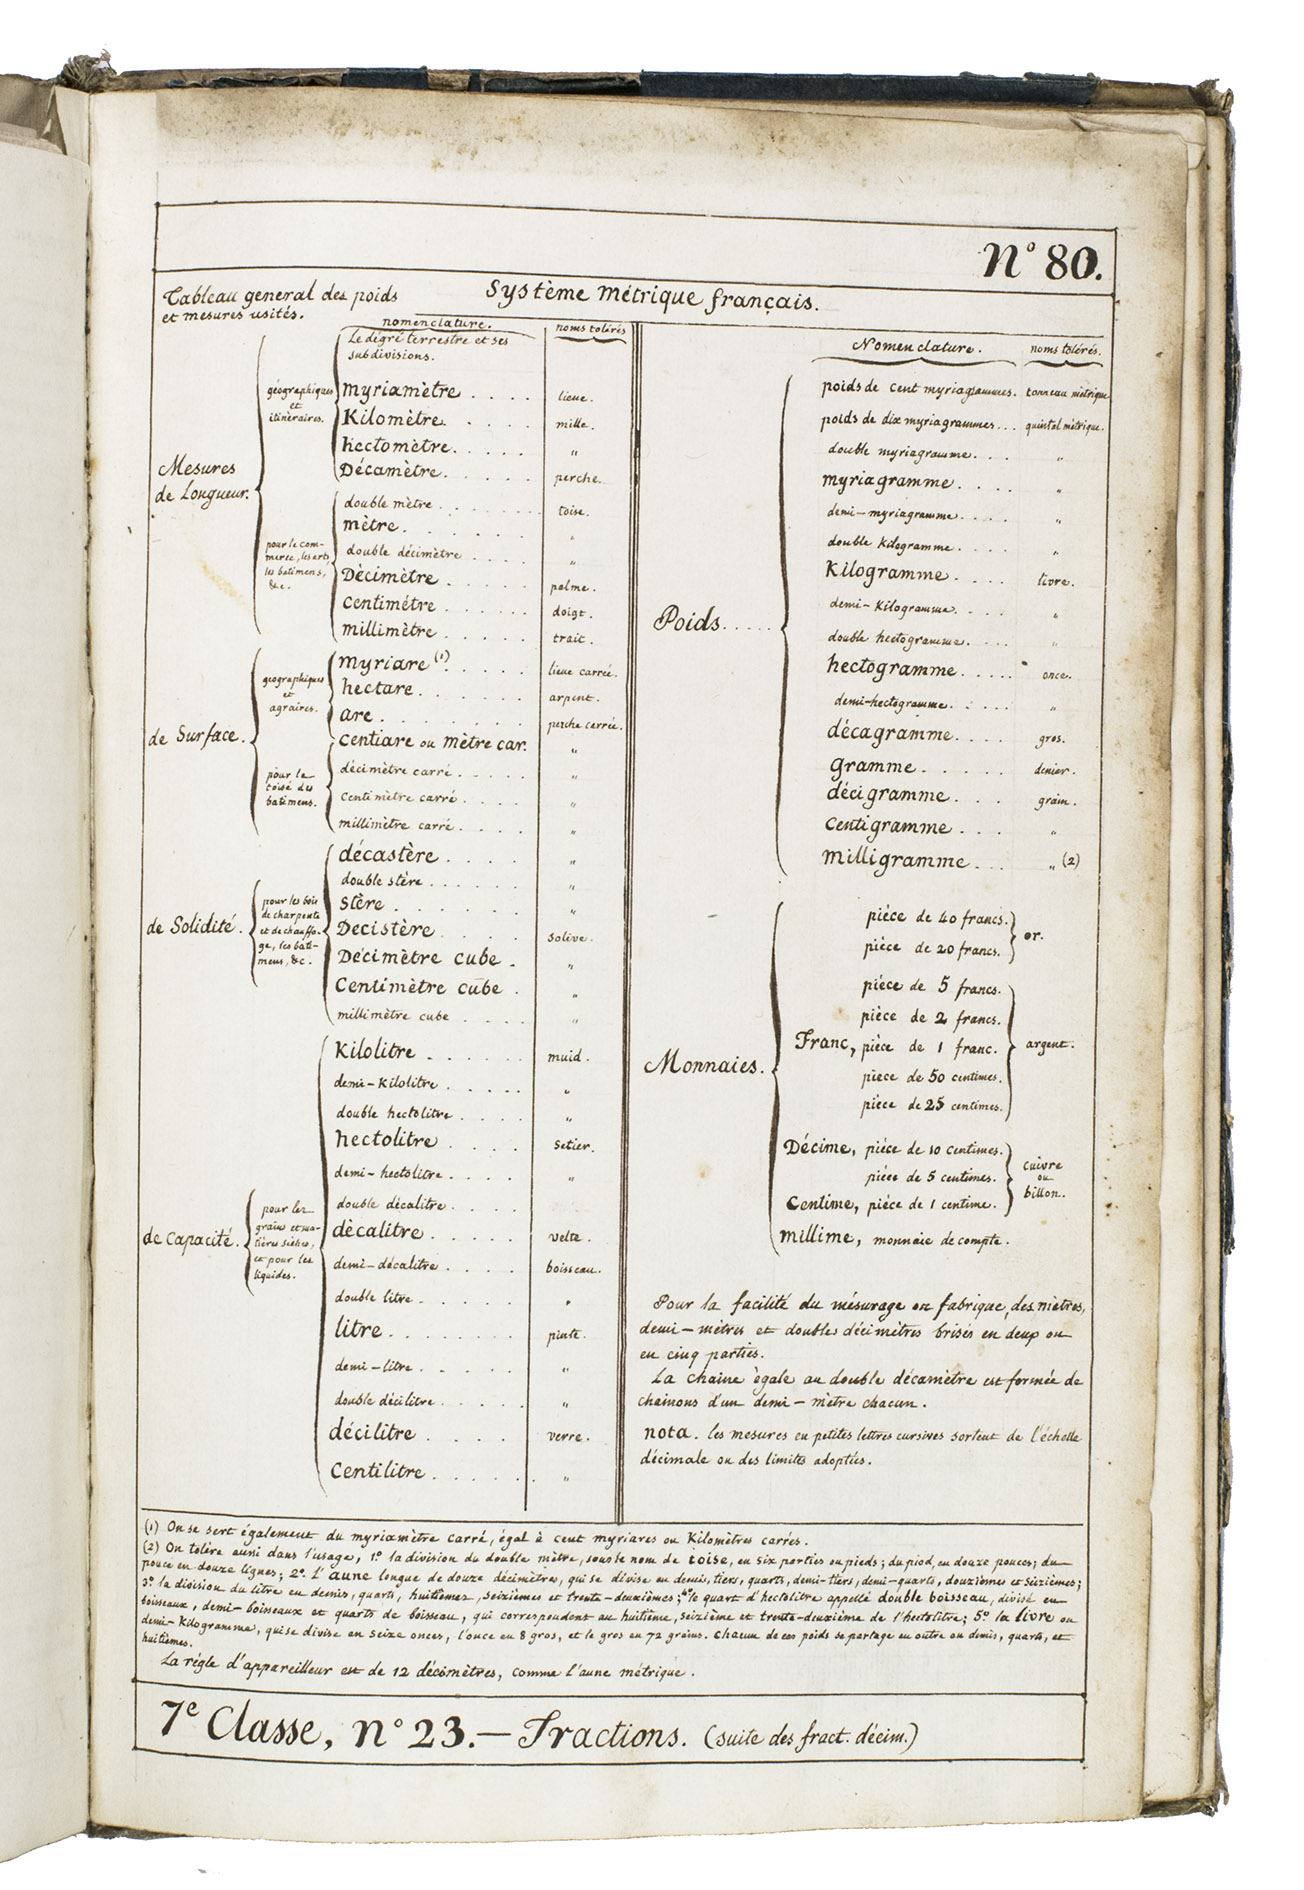 N° 80.
Tableau general des poids
et mesures usités.
Système métrique français.
nomenclature.
noms tolérés
Mesures
de Longueur.
géographiques
et
itinéraires.
Le dégré terrestre et ses
subdivisions.
myriamètre . . . . lieue.
Kilomètre . . . . mille.
hectomètre. . . . . "
Décamètre. . . . . . perche.
pour le com-
merce, les arts,
les batimens,
&c.
double mètre . . . . . . . . toise.
mètre. . . . . . "
double décimètre . . . . "
Dècimètre . . . . . palme.
centimètre . . . . . . doigt.
millimètre . . . . . trait.
de Surface.
géographiques
et
agraires.
myriare (1) . . . . lieue carrée.
hectare . . . . . . arpent.
are . . . . . . . . perche carrée.
centiare ou mètre car. "
pour le
toisé des
batimens.
décimètre carré . . . . . "
centimètre carré . . . . "
millimètre carré . . . . "
de Solidité.
pour les bois
de charpente
et de chauffa-
ge, les bati-
mens, &c.
décastère . . . . "
double stère . . . . . . "
stère . . . . . . . "
Decistère . . . . . solive.
Décimètre cube . "
Centimètre cube . "
millimètre cube . . . . "
de Capacité.
pour les
grains et ma-
tières sèches,
et pour les
liquides.
Kilolitre . . . . . . muid.
demi-Kilolitre . . . . . "
double hectolitre . . . . "
hectolitre . . . . setier.
demi-hectolitre . . . . "
double décalitre . . . .
dècalitre . . . . . velte.
demi-décalitre . . . . boisseau.
double litre . . . . . "
litre . . . . . . . . pinte.
demi-litre . . . . . "
double décilitre . . . . . "
décilitre . . . . verre.
Centilitre . . . . . . "
Nomenclature.
noms tolérés.
Poids . . . . .
poids de cent myriagrammes. tonneau métrique
poids de dix myriagrammes. . . quintal métrique.
double myriagramme. . . . "
myriagramme . . . . "
demi-myriagramme . . . . . "
double Kilogramme . . . . . "
Kilogramme . . . . livre.
demi-Kilogramme. . . . . "
double hectogramme. . . . "
hectogramme . . . . . once.
demi-hectogramme. . . . . "
décagramme. . . . . gros.
gramme . . . . . denier.
décigramme . . . grain.
Centigramme . . . "
milligramme . . . " (2)
Monnaies.
pièce de 40 francs.
pièce de 20 francs.
or.
pièce de 5 francs.
pièce de 2 francs.
Franc, pièce de 1 franc.
pièce de 50 centimes.
pièce de 25 centimes.
argent.
Décime, pièce de 10 centimes.
pièce de 5 centimes.
Centime, pièce de 1 centime.
cuivre
ou
billon.
millime, monnaie de compte.
Pour la facilité du mésurage on fabrique des mètres,
demi-mètres et doubles décimètres brisés en deux ou
en cinq parties.
La chaine ègale au double décamètre est formée de
chainons d'un demi-mètre chacun.
nota. les mesures en petites lettres cursives sortent de l'échelle
décimale ou des limites adoptées.
(1) On se sert également du myriamètre carré, égal à cent myriares ou Kilomètres carrés.
(2) On tolère aussi dans l'usage, 1° la division du double mètre, sous le nom de toise, en six parties ou pieds; du pied, en douze pouces; du
pouce en douze lignes; 2° l'aune longue de douze décimètres, qui se divise en demis, tiers, quarts, demi-tiers, demi-quarts, douzièmes et seizièmes;
3° la division du litre en demis, quarts, huitièmes, seizièmes et trente-deuxièmes; 4° le quart d'hectolitre appellé double boisseau, divisé en
boisseaux, demi-boisseaux et quarts de boisseau, qui correspondent au huitième, seizième et trente-deuxième de l'hectolitre; 5° la livre ou
demi-Kilogramme, qui se divise en seize onces, l'once en 8 gros, et le gros en 72 grains. Chacun de ces poids se partage en outre en demis, quarts, et
huitièmes.
La règle d'appareilleur est de 12 décimètres, comme l'aune métrique.
7e Classe, n° 23. — Fractions. (suite des fract. décim.)